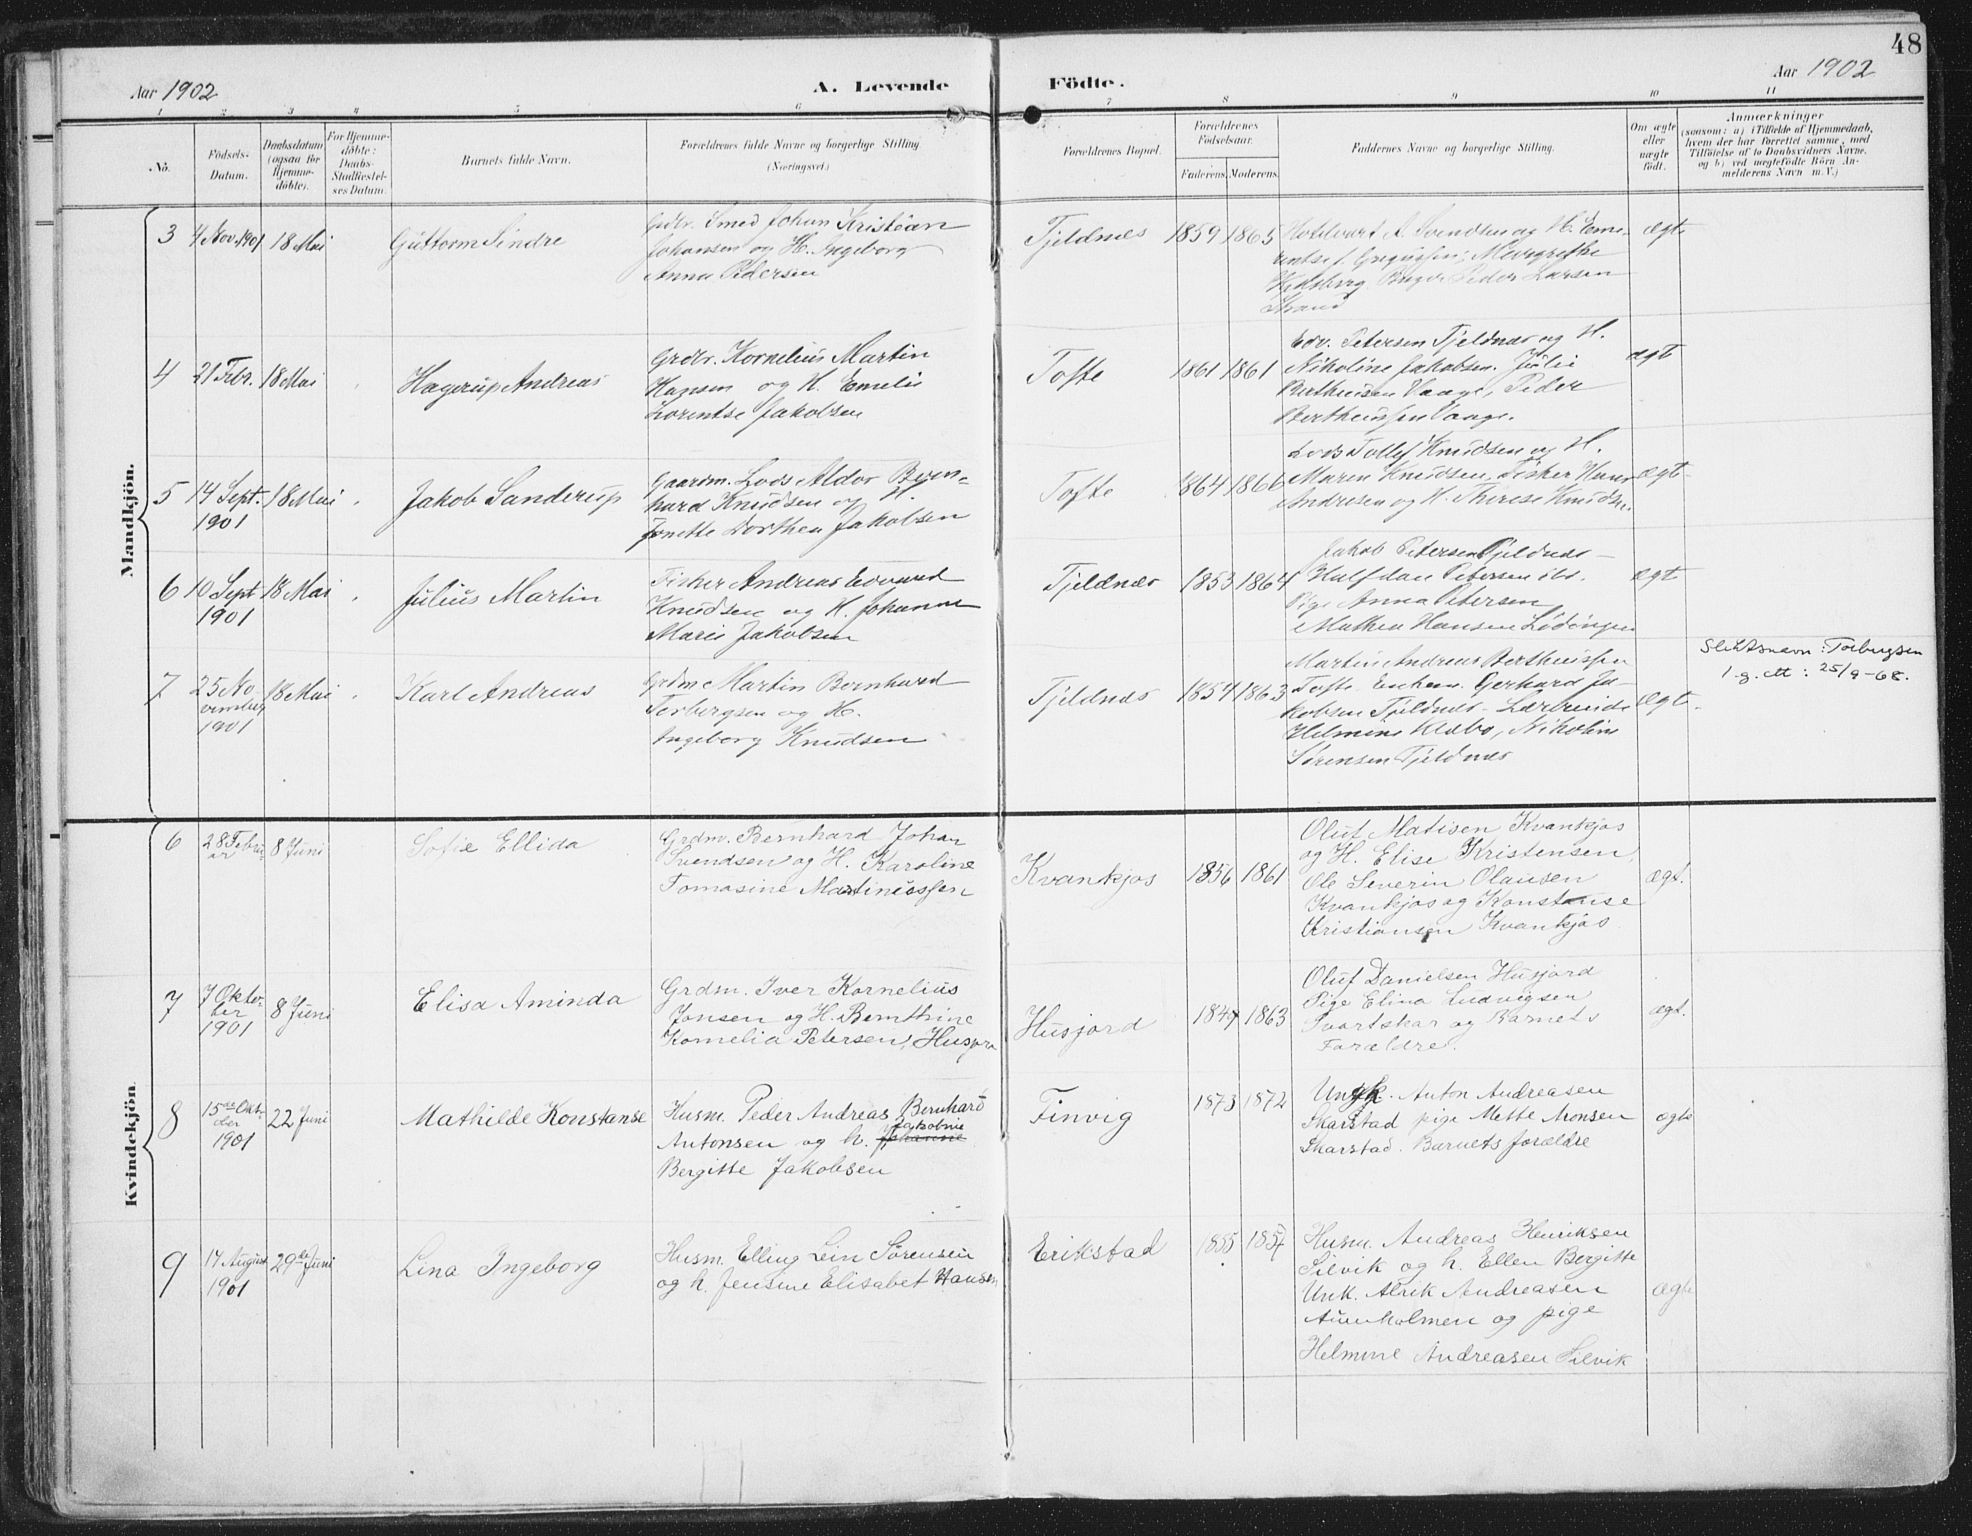 48
Aar 1902
A. Levende
Födte.
Aar 1902
1 2 3 4 5 6 7 8 9 10 11
No.
Födsels-
Datum.
Daabsdatum
(ogsaa for
Hjemme-
döbte).
For Hjemme-
döbte:
Daabs-
Stadfæstel-
ses Datum.
Barnets fulde Navn.
Forældrenes fulde Navne og borgerlige Stilling
(Næringsvei.)
Forældrenes Bopæl.
Forældrenes
Födselsaar.
Faderens. Moderens.
Faddernes Navne og borgerlige Stilling.
Om ægte
eller
uægte
födt.
Anmærkninger
(saasom: a) i Tilfælde af Hjemmedaab,
hvem der har forrettet samme, med
Tilföielse af to Daabsvidners Navne.
og b) ved uægtefödte Börn An-
melderens Navn m. V.)
Mandkjön.
3
4 Nov. 1901
18 Mai
Guttorm Sindre
Grdbr. Smed Johan Kristian
Johansen og H. Ingeborg
Anna Pedersen
Tjeldnæs
1859
1865
Svendsen og H. Eme-
Peder Larsen
Strand
ægt.
4
21 Febr.
18 Mai
Hagerup Andreas
Grdbr. Kornelius Martin
Hansen og H. Emelie
Lorentse Jakobsen
Tofte
1861
1861
Edv. Petersen Tjeldnæs og H.
Nikoline Jakobsen. Julie
Bertheusen Vaage, Peder
Bertheussen Vaage.
ægt
5
14 Sept.
1901
18 Mai
Jakob Sanderup
Gaardm. Lods Aldor Bern-
hard Knudsen og H.
Jonette Dorthea Jakobsen
Tofte
1864
1866
Lods Tollef Knudsen og H.
Maren Knudsen, Fisker Hans
Andresen og H. Therese Knudsen
ægt.
6
10 Sept
1901
18 Mai
Julius Martin
Fisker Andreas Edvard
Knudsen og H. Johanna
Marie Jakobsen
Tjeldnæs
1853
1864
Jakob Petersen Tjeldnæs
Halfdan Petersen ibd.
Pige Anna Petersen
Mathea Hansen Lødingen
ægt
7
25 No-
vember
1901
18 Mai
Karl Andreas
Grdm Martin Bernhard
Torbergsen og H.
Ingeborg Knudsen
Tjeldnæs
1854
1863
Martin Andreas Bertheussen
Tofte. Enkem. Gerhard Ja-
kobsen Tjeldnæs. Lærerinde
Helmine Klæbo, Nikoline
Sørensen Tjeldnæs
Ægt.
Slektsnavn: Torbergsen
l.g. att: 25/9-68.
Kvindekjön
6
28 Febru-
ar
8 Juni
Sofie Ellida
Grdm. Bernhard Johan
Svendsen og H. Karoline
Tomasine Martinussen
Kvankjos
1856
1861
Oluf Matisen Kvankjos
og H. Elise Kristensen,
Ole Severin Olausen
Kvankjos og Konstanse
Kristiansen Kvankjos
ægt.
7
7 Okto-
ber
1901
8 Juni
Elisa Aminda
Grdm. Iver Kornelius
Jonsen og H. Bernthine
Kornelia Petersen, Husjord
Husjord
1847
1863
Oluf Danielsen Husjord
Pige Elina Ludvigsen
Svartskar og Barnets
Forældre.
ægt.
8
15de Okt-
ober
1901
22 Juni
Mathilde Konstanse
Husm. Peder Andreas Bernhard
Antonsen og h. Johanne Jakobine
Bergitte Jakobsen
Finvig
1873
1872
Ungk. Anton Andreasen
Skarstad pige Mette Monsen
Skarstad. Barnets forældre
ægte
9
17 August
1901
29de Juni
Lina Ingeborg
Husm. Elling Lein Sørensen
og h. Jensine Elisabet Hansen
Erikstad
1855
1857
Husm. Andreas Henriksen
Silvik og h. Ellen Bergitte
Unk. Alrik Andreasen
Aunholmen og pige
Helmine Andreasen Silvik
ægte